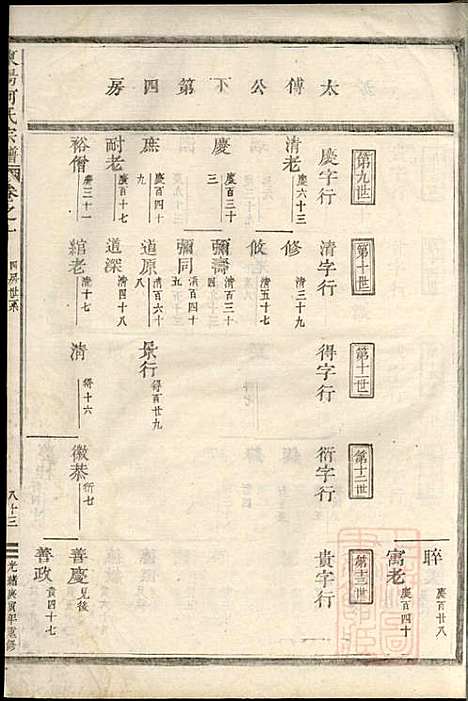 太傅公下第四房
睟 慶百廿八
寓老 慶百四十
第九世
第十世
第十一世
第十二世
第十三世
慶字行
清字行
得字行
衍字行
貴字行
清老 慶六十三
修 清三十九
攸 清五十七
慶 慶百三十三
彌壽 清百三十四
彌同 清百四十五
庶 慶百四十九
道原 清百六十
景行 得百廿九
耐老 慶百十七
道深 清四十八
裕僧 慶三十一
綰老 清十七
清 得十六
徽恭 衍七
善慶 見後
善政 貴四十七
東陽何氏宗譜
卷之一
四房世系
八十三
光緒庚寅年重修